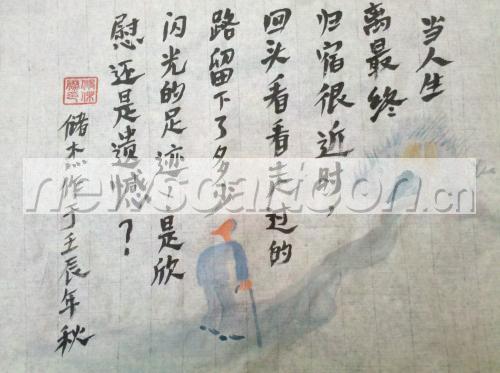 当人生
离最终
归宿很近时，
回头看看走过的
路留下了多少
闪光的足迹？是欣
慰还是遗憾？
储杰作于壬辰年秋
newscartoon.cn